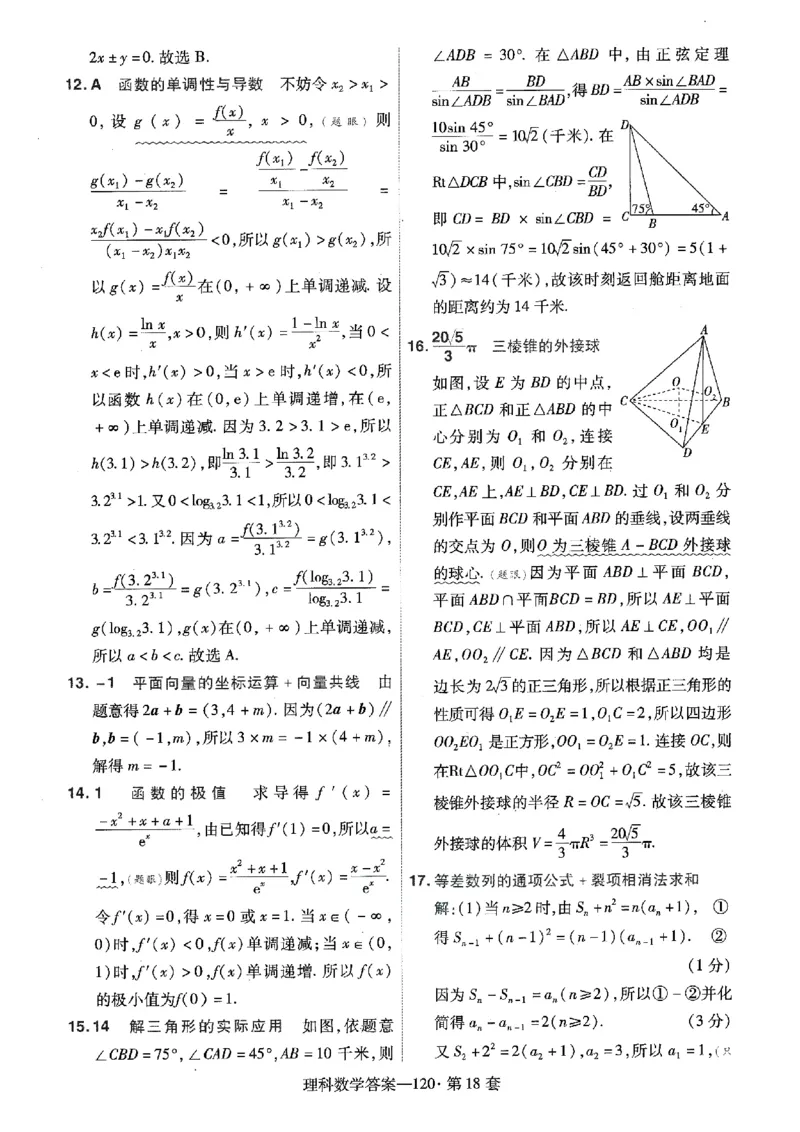 2x±y=0. 故选 B.
12. A 函数的单调性与导数 不妨令 x₂>x₁>
0, 设 g(x) = f(x)/x, x > 0, (题眼) 则
(g(x₁)-g(x₂))/(x₁-x₂) = (f(x₁)/x₁ - f(x₂)/x₂)/(x₁-x₂) =
(x₂f(x₁)-x₁f(x₂))/((x₁-x₂)x₁x₂) <0, 所以 g(x₁)>g(x₂), 所
以 g(x)=f(x)/x 在(0, +∞)上单调递减. 设
h(x)=ln x/x, x>0, 则 h′(x)=(1-ln x)/x², 当 0<
x<e 时, h′(x)>0, 当 x>e 时, h′(x)<0, 所
以函数 h(x)在(0,e)上单调递增, 在(e,
+∞)上单调递减. 因为 3.2>3.1>e, 所以
h(3.1)>h(3.2), 即 ln 3.1/3.1 > ln 3.2/3.2, 即 3.1^3.2 >
3.2^3.1>1. 又 0<log_3.2 3.1<1, 所以 0<log_3.2 3.1<
3.2^3.1<3.1^3.2. 因为 a=f(3.1^3.2)/3.1^3.2=g(3.1^3.2),
b=f(3.2^3.1)/3.2^3.1=g(3.2^3.1), c=f(log_3.2 3.1)/log_3.2 3.1=
g(log_3.2 3.1), g(x)在(0, +∞)上单调递减,
所以 a<b<c. 故选 A.
13. -1 平面向量的坐标运算+向量共线 由
题意得 2a+b=(3,4+m). 因为(2a+b)∥
b, b=(-1,m), 所以 3×m=-1×(4+m),
解得 m=-1.
14. 1 函数的极值 求导得 f′(x) =
(-x²+x+a+1)/e^x, 由已知得 f′(1)=0, 所以 a=
-1, (题眼) 则 f(x)=(x²+x+1)/e^x, f′(x)=(x-x²)/e^x.
令 f′(x)=0, 得 x=0 或 x=1. 当 x∈(-∞,
0)时, f′(x)<0, f(x)单调递减; 当 x∈(0,
1)时, f′(x)>0, f(x)单调递增. 所以 f(x)
的极小值为 f(0)=1.
15. 14 解三角形的实际应用 如图, 依题意
∠CBD=75°, ∠CAD=45°, AB=10 千米, 则
∠ADB = 30°. 在 △ABD 中, 由正弦定理
AB/sin∠ADB = BD/sin∠BAD, 得 BD = AB×sin∠BAD/sin∠ADB =
10sin 45°/sin 30° = 10√2(千米). 在
Rt△DCB 中, sin∠CBD=CD/BD,
即 CD= BD × sin∠CBD =
D
C
75°
B
45°
A
10√2×sin 75°=10√2sin(45°+30°)=5(1+
√3)≈14(千米), 故该时刻返回舱距离地面
的距离约为 14 千米.
16. 20√5/3 π 三棱锥的外接球
如图, 设 E 为 BD 的中点,
正△BCD 和正△ABD 的中
心分别为 O₁ 和 O₂, 连接
CE, AE, 则 O₁, O₂ 分别在
A
O
O₂
C
B
O₁
E
D
CE, AE 上, AE⊥BD, CE⊥BD. 过 O₁ 和 O₂ 分
别作平面 BCD 和平面 ABD 的垂线, 设两垂线
的交点为 O, 则 O 为三棱锥 A-BCD 外接球
的球心. (题眼) 因为平面 ABD⊥平面 BCD,
平面 ABD∩平面 BCD=BD, 所以 AE⊥平面
BCD, CE⊥平面 ABD, 所以 AE⊥CE, OO₁∥
AE, OO₂∥CE. 因为△BCD 和△ABD 均是
边长为 2√3 的正三角形, 所以根据正三角形的
性质可得 O₁E=O₂E=1, O₁C=2, 所以四边形
OO₂EO₁ 是正方形, OO₁=O₂E=1. 连接 OC, 则
在 Rt△OO₁C 中, OC²=OO₁²+O₁C²=5, 故该三
棱锥外接球的半径 R=OC=√5. 故该三棱锥
外接球的体积 V=4/3 πR³=20√5/3 π.
17. 等差数列的通项公式+裂项相消法求和
解:(1)当 n≥2 时, 由 Sₙ+n²=n(aₙ+1), ①
得 Sₙ₋₁+(n-1)²=(n-1)(aₙ₋₁+1). ②
(1 分)
因为 Sₙ-Sₙ₋₁=aₙ(n≥2), 所以①-②并化
简得 aₙ-aₙ₋₁=2(n≥2). (3 分)
又 S₂+2²=2(a₂+1), a₂=3, 所以 a₁=1, (
理科数学答案—120·第 18 套